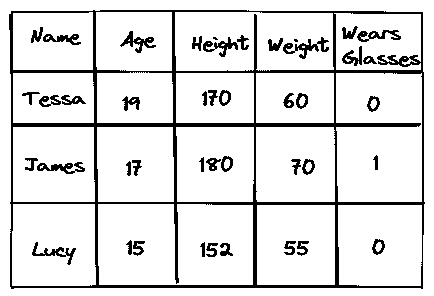 Name Age Height Weight Wears Glasses
Tessa 19 170 60 0
James 17 180 70 1
Lucy 15 152 55 0